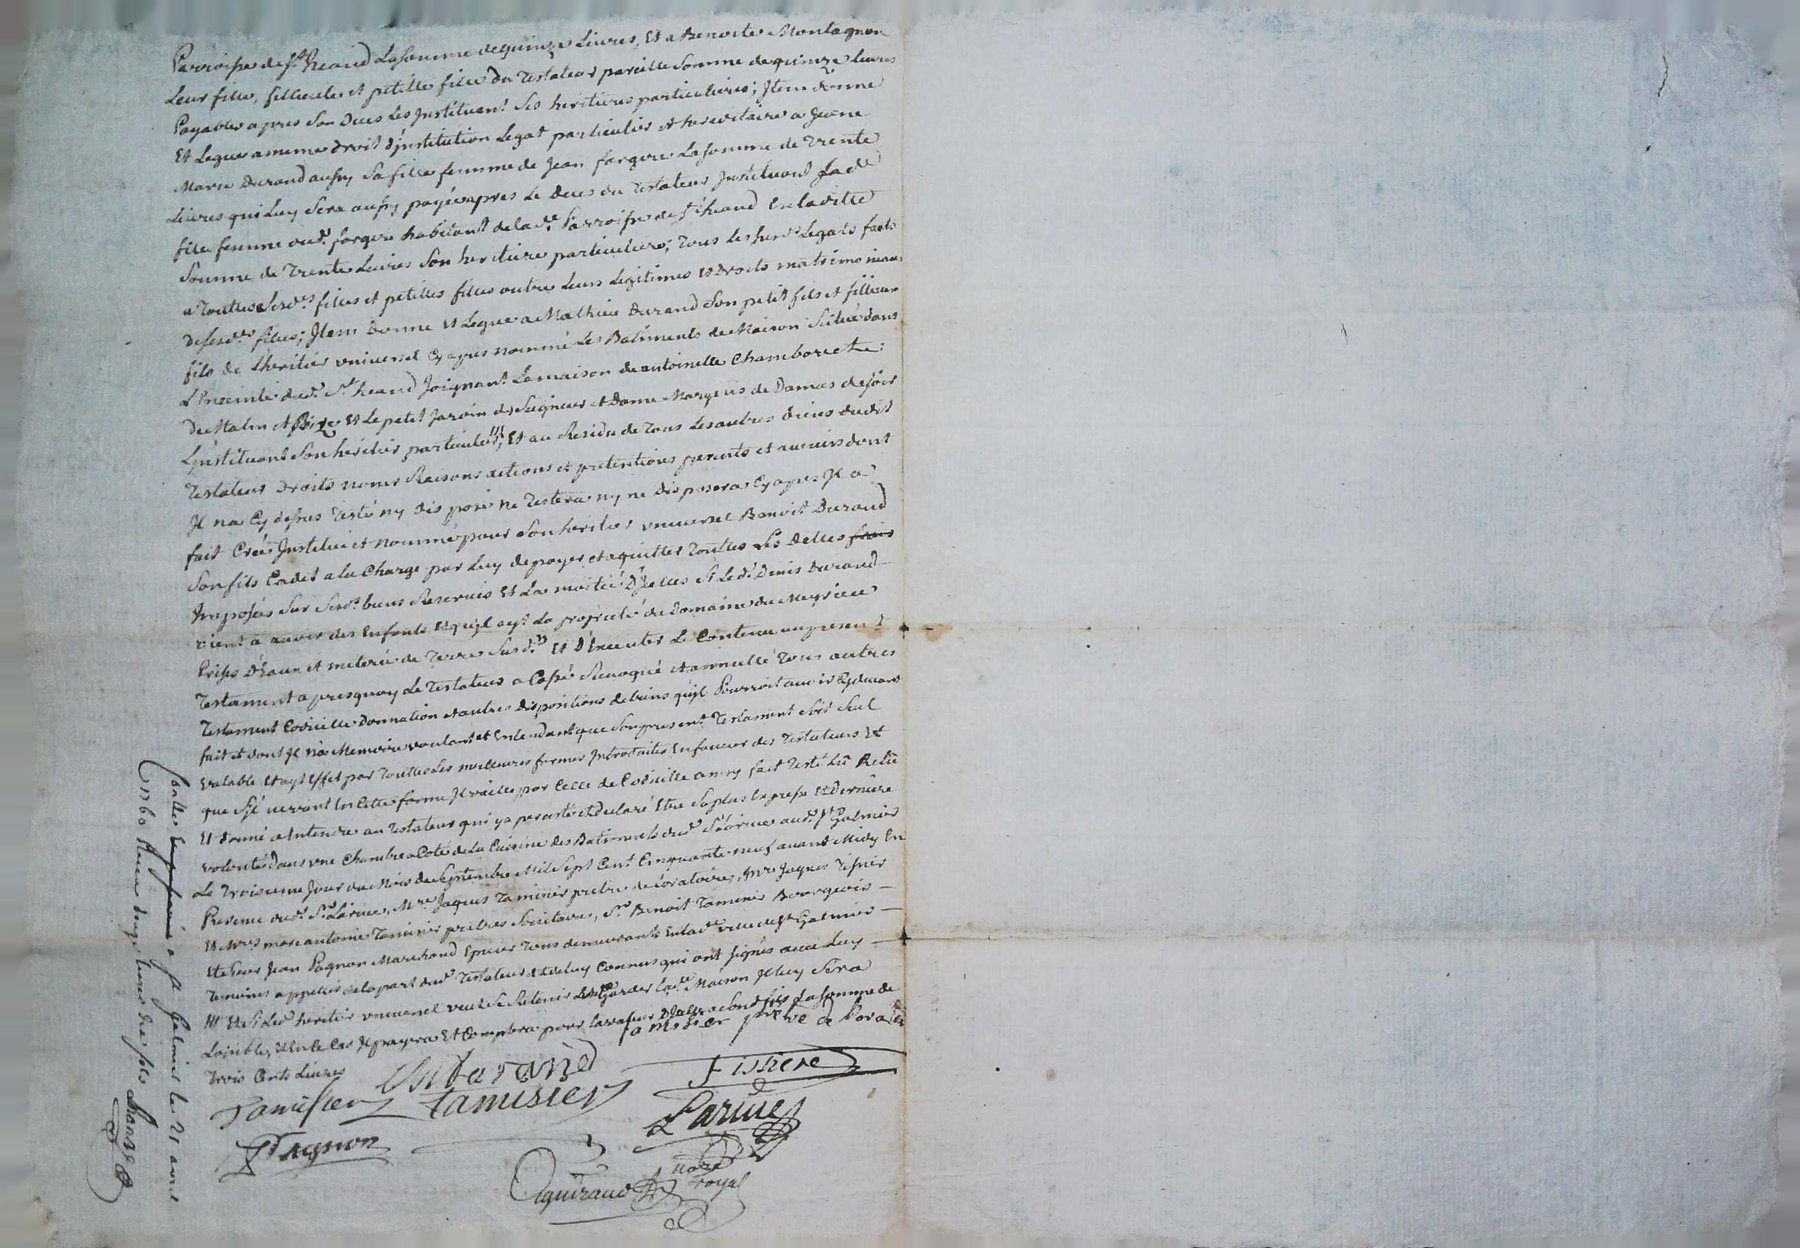 Parroisse de St heand La somme de quinze Livres, Et a Benoite Montagnon
Leur fille, filleule et petitte fille du Testateur pareille Somme de quinze Livres
Payables apres Son Deces Les Jnstituant Ses heritieres particulieres; Jtem donne
Et Legue a meme droit d'jnstitution Legat particulier et hereditaire a Jeane
Marie Durand aussy Sa fille femme de Jean fargere La Somme de Trente
Livres qui Luy Sera aussy payée apres Le Deces du Testateur Jnstituant Sad.
fille femme aud. fargere habitant de lad. Parroisse de St heand En laditte
Somme de Trente Livres Son heritiere particuliere; Tous Les Susd. Legats faits
a Touttes Sesd. filles et petittes filles outre Leurs Legitimes et Droits matrimoniaux
de Sesd. filles; Jtem Donne et Legue a Mathieu Durand Son petit fils et filleul
fils de Lheritier vniversel Cy apres nommé Les Batiments de Maison Situés dans
L'Enceinte dud. St heand Joignant La maison de antoinette Chamboret
De Matin et Bize Et Le petit Jardin des Seigneur et Dame Marquis de Damas de Soir
L'jnstituant Son heritier particulier, Et au Residu de Tous Les autres Biens dudit
Testateur Droits noms Raisons actions et pretentions presents et avenirs dont
Jl na Cy dessus Testé ny Disposé ne Testera ny ne disposera Cy apres Jl a
fait Créé Jnstitué et nommé pour Son heritier vniversel Benoit Durand
Son fils Cadet a la Charge par Luy de payer et aquitter Touttes Les Dettes
Jmposées Sur Sesd. biens Reservés Et La moitié D'Jcelles Si Led. Denis Durand
vient a avoir des Enfants Et quil ayt La proprieté du Domaine du Meyrieu
Prises D'Eaux et meterie de Terre Susd. Et D'Executer Le Contenu au present
Testament apres quoy Le Testateur a Cassé Revoqué et annullé Tous autres
Testament Codicille Donnation et autres dispositions de biens qu'jl Pourroit avoir Cydevant
fait et dont Jl na Memoire voulant et Entendant que Son present Testament Soit Seul
valable Et ayt Effet par Touttes Les meilleures formes Jntroduites En faveur des Testateurs Et
que S'jl ne vaut En Cette forme Jl vaille par Celle de Codicille ainsy fait Testé Lû Relû
Et donné a Entendre au Testateur qui y a persisté Et Declaré Etre Sa plus Expresse Et Derniere
volonté Dans vne Chambre a Coté de La Cuisine des Batiments du Sr Larive aud. St Galmier
Le Troisieme Jour du Mois de Septembre Mil Sept Cent Cinquante-neuf avant Midy En
Presence dud. Sr Larive, Mre Jaques Tamisier pretre de L'oratoire, Mre Jaques Tissier
Et Mre marc antoine Tamisier pretres Societaires, Sr Benoit Tamisier Bourgeois
Et Sieur Jean Pagnon Marchand Epicier Tous demeurants En lad. ville de St Galmier
Temoins appellés de la part dud. Testateur Et de luy Connus qui ont Signés avec Luy
Et Si Led. heritier vniversel veut Se Retenir Et Garder Lad. Maison Jl luy Sera
Loisible, Et En Ce Cas Jl payera Et Comptera pour la valeur D'Jcelle a Sond. fils La Somme de
Trois Cents Livres
Tamisier prêtre de l'oratoire
Durand
Fissiere
Tamisier
Tamisier
Larive
Pagnon
Aguiraud
Nore
royal
Con.lé a St Galmier le 21 avril
1760 Receu douze livres dix sols